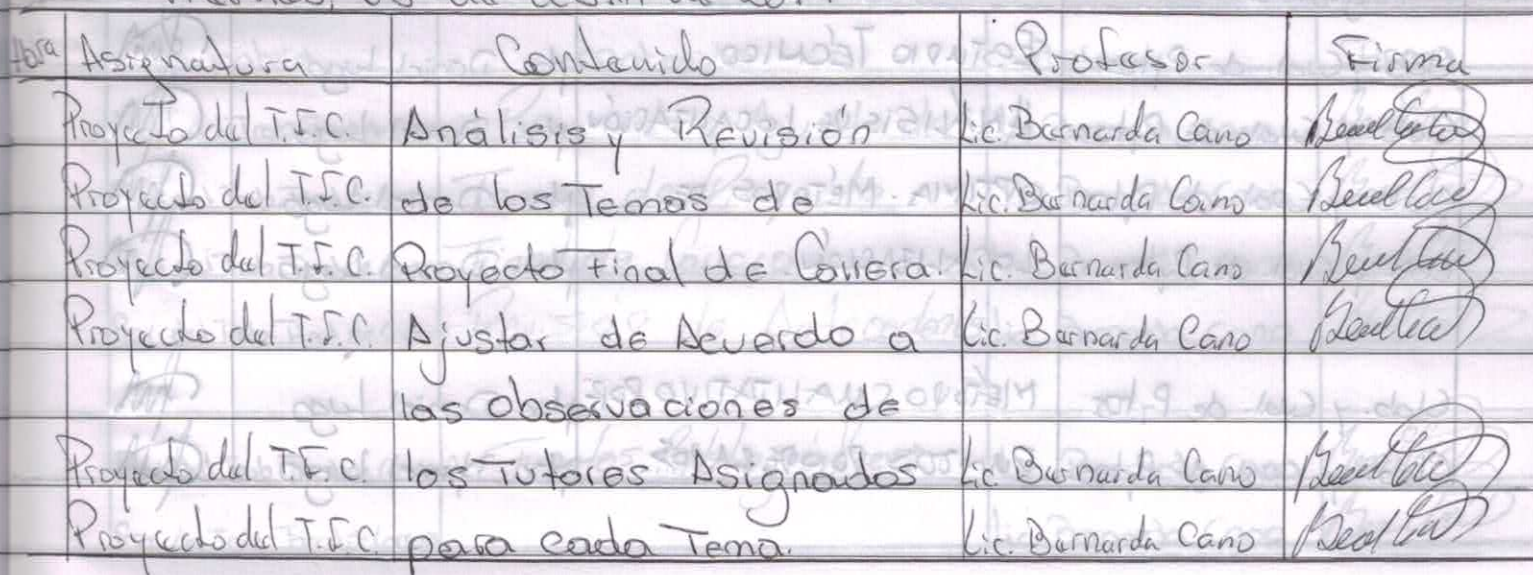 Hora Asignatura Contenido Profesor Firma
Proyecto del T.F.C. Análisis y Revisión Lic. Bernarda Cano
Proyecto del T.F.C. de los Temas de Lic. Bernarda Cano
Proyecto del T.F.C. Proyecto Final de Carrera. Lic. Bernarda Cano
Proyecto del T.F.C. Ajustar de Acuerdo a Lic. Bernarda Cano
las observaciones de
Proyecto del T.F.C. los Tutores Asignados Lic. Bernarda Cano
Proyecto del T.F.C. para cada Tema. Lic. Bernarda Cano